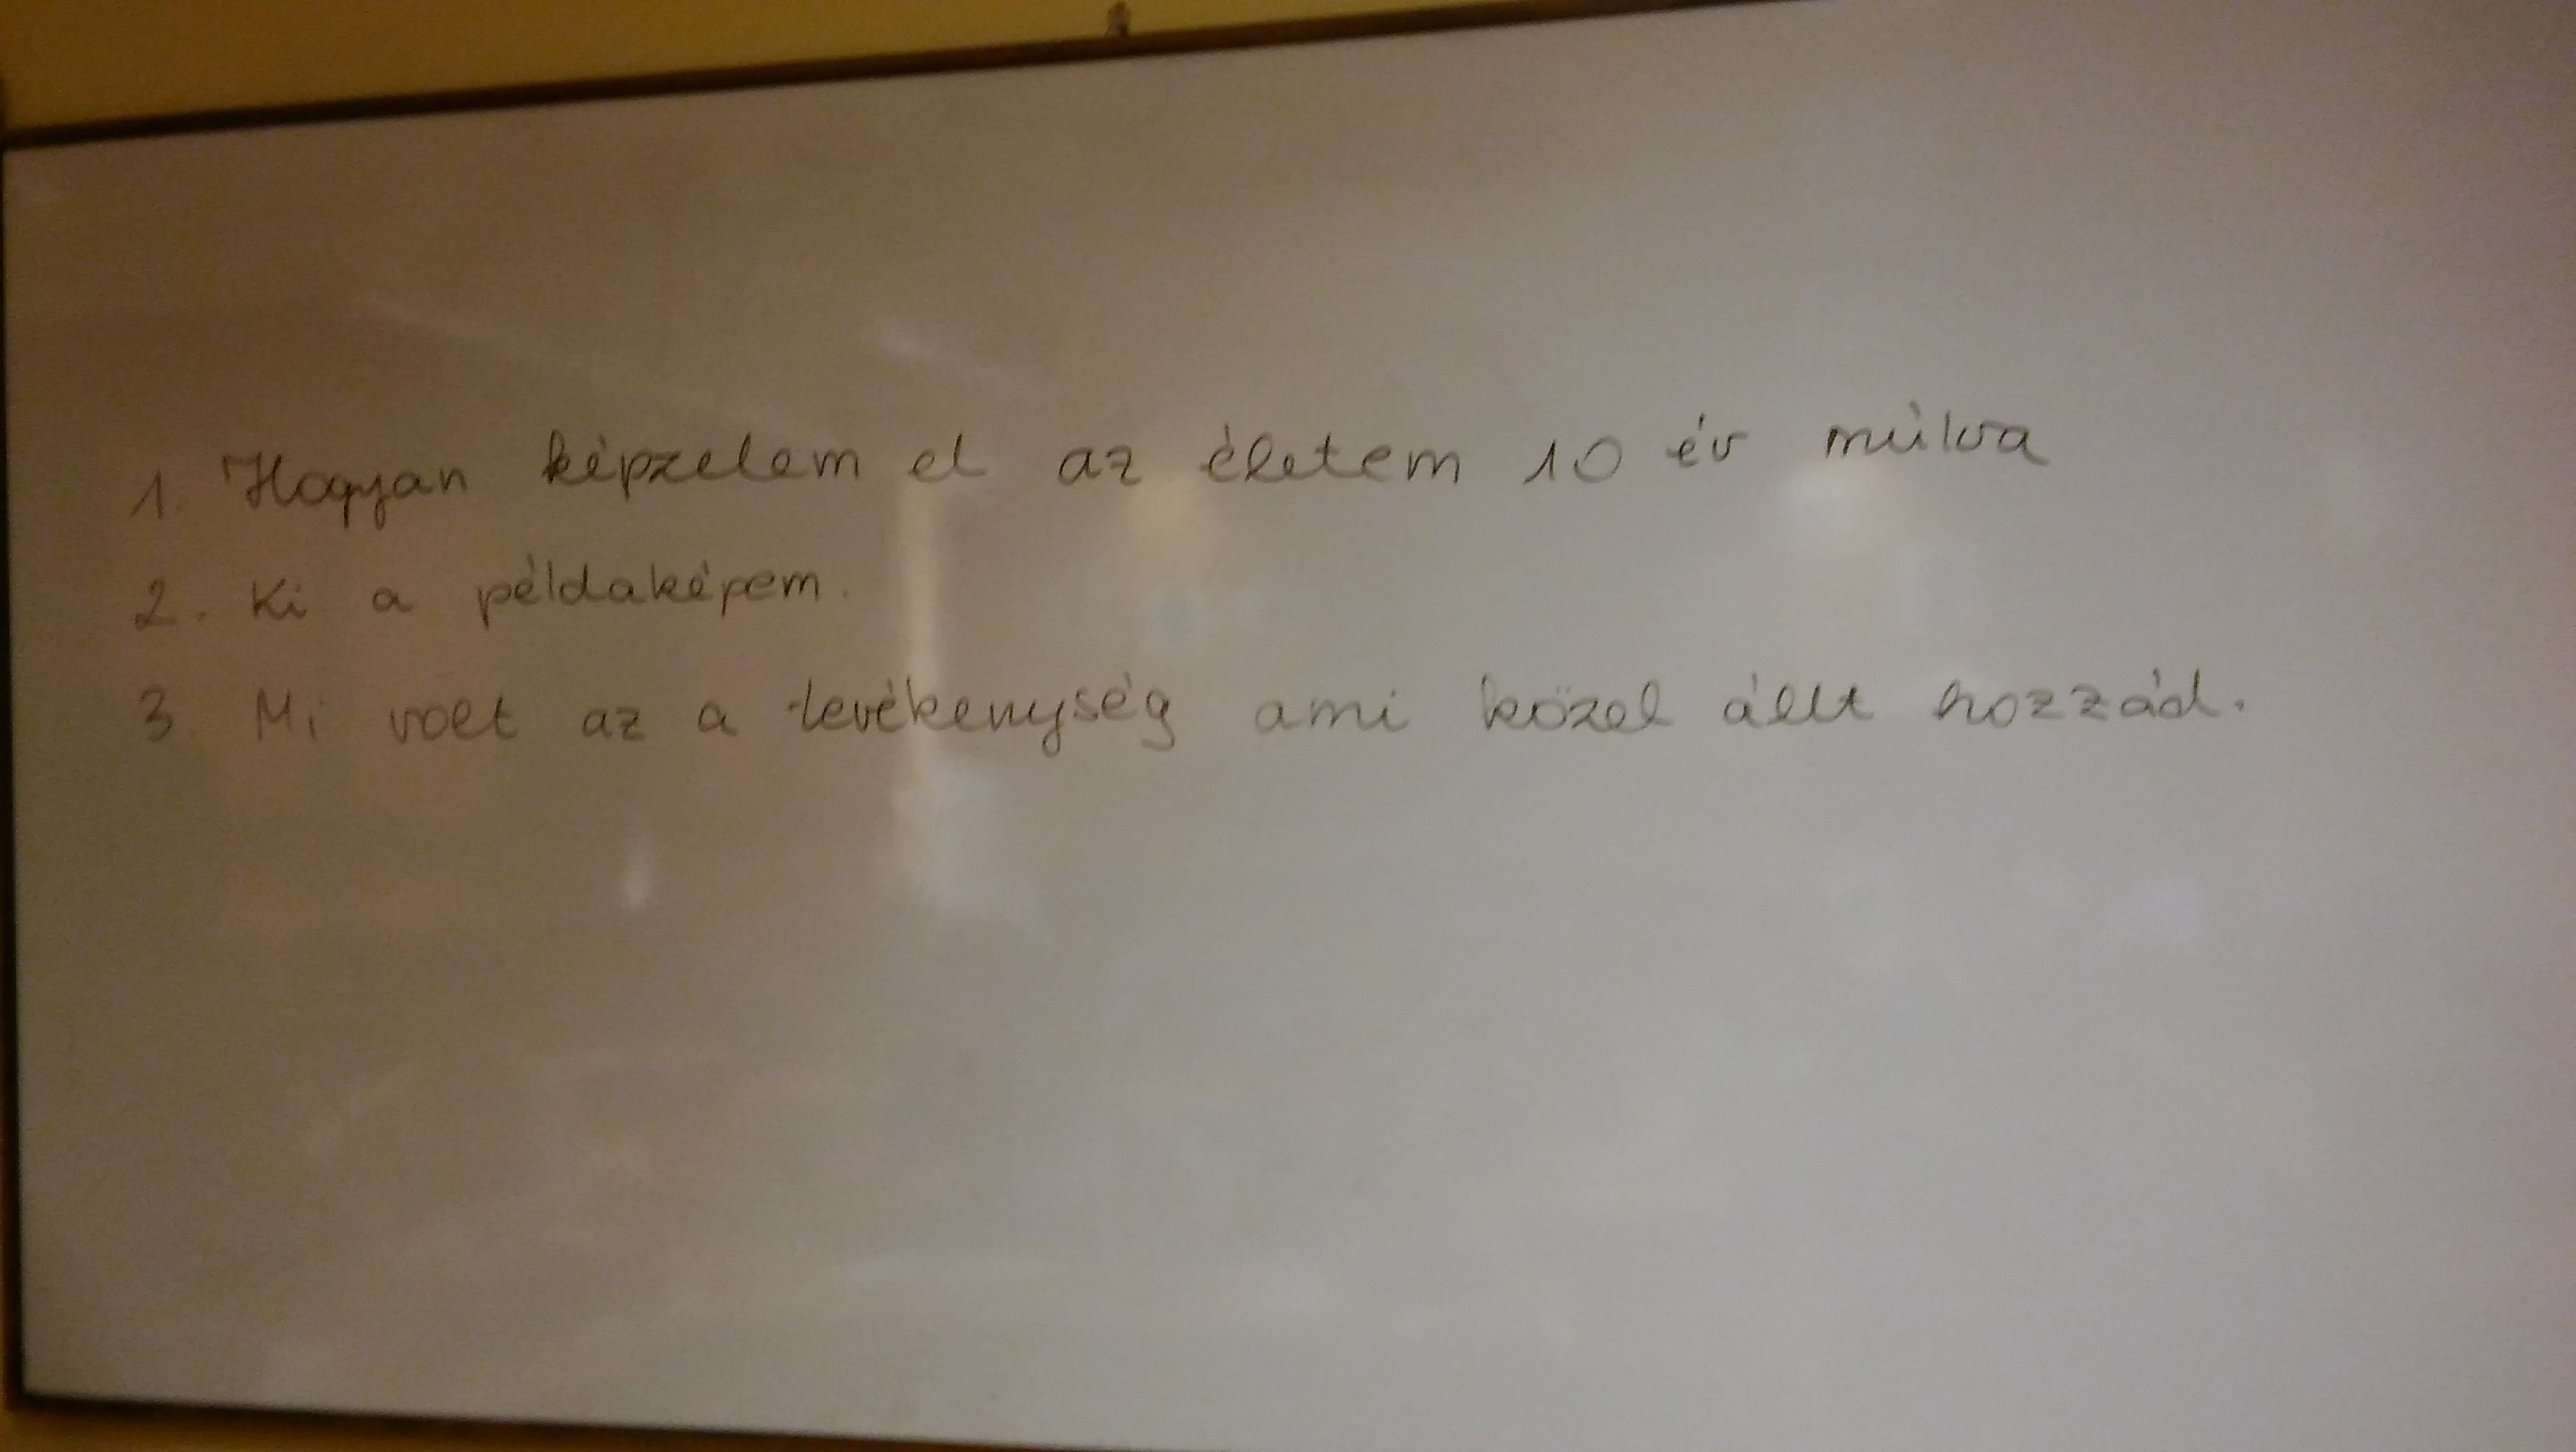 1. Hogyan képzelem el az életem 10 év múlva
2. Ki a példaképem.
3. Mi volt az a tevékenység ami közel állt hozzád.